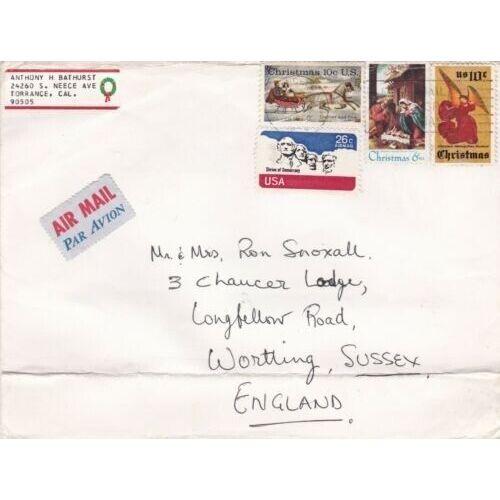 ANTHONY H BATHURST
24260 S. NEECE AVE
TORRANCE, CAL.
90505
Christmas 10c U.S.
Christmas 6
US 10c
Christmas
26c
AIRMAIL
Shrine of Democracy
USA
AIR MAIL
PAR AVION
Mr. & Mrs. Ron Snoxall.
3 Chaucer Lodge,
Longfellow Road,
Worthing, SUSSEX.
ENGLAND.